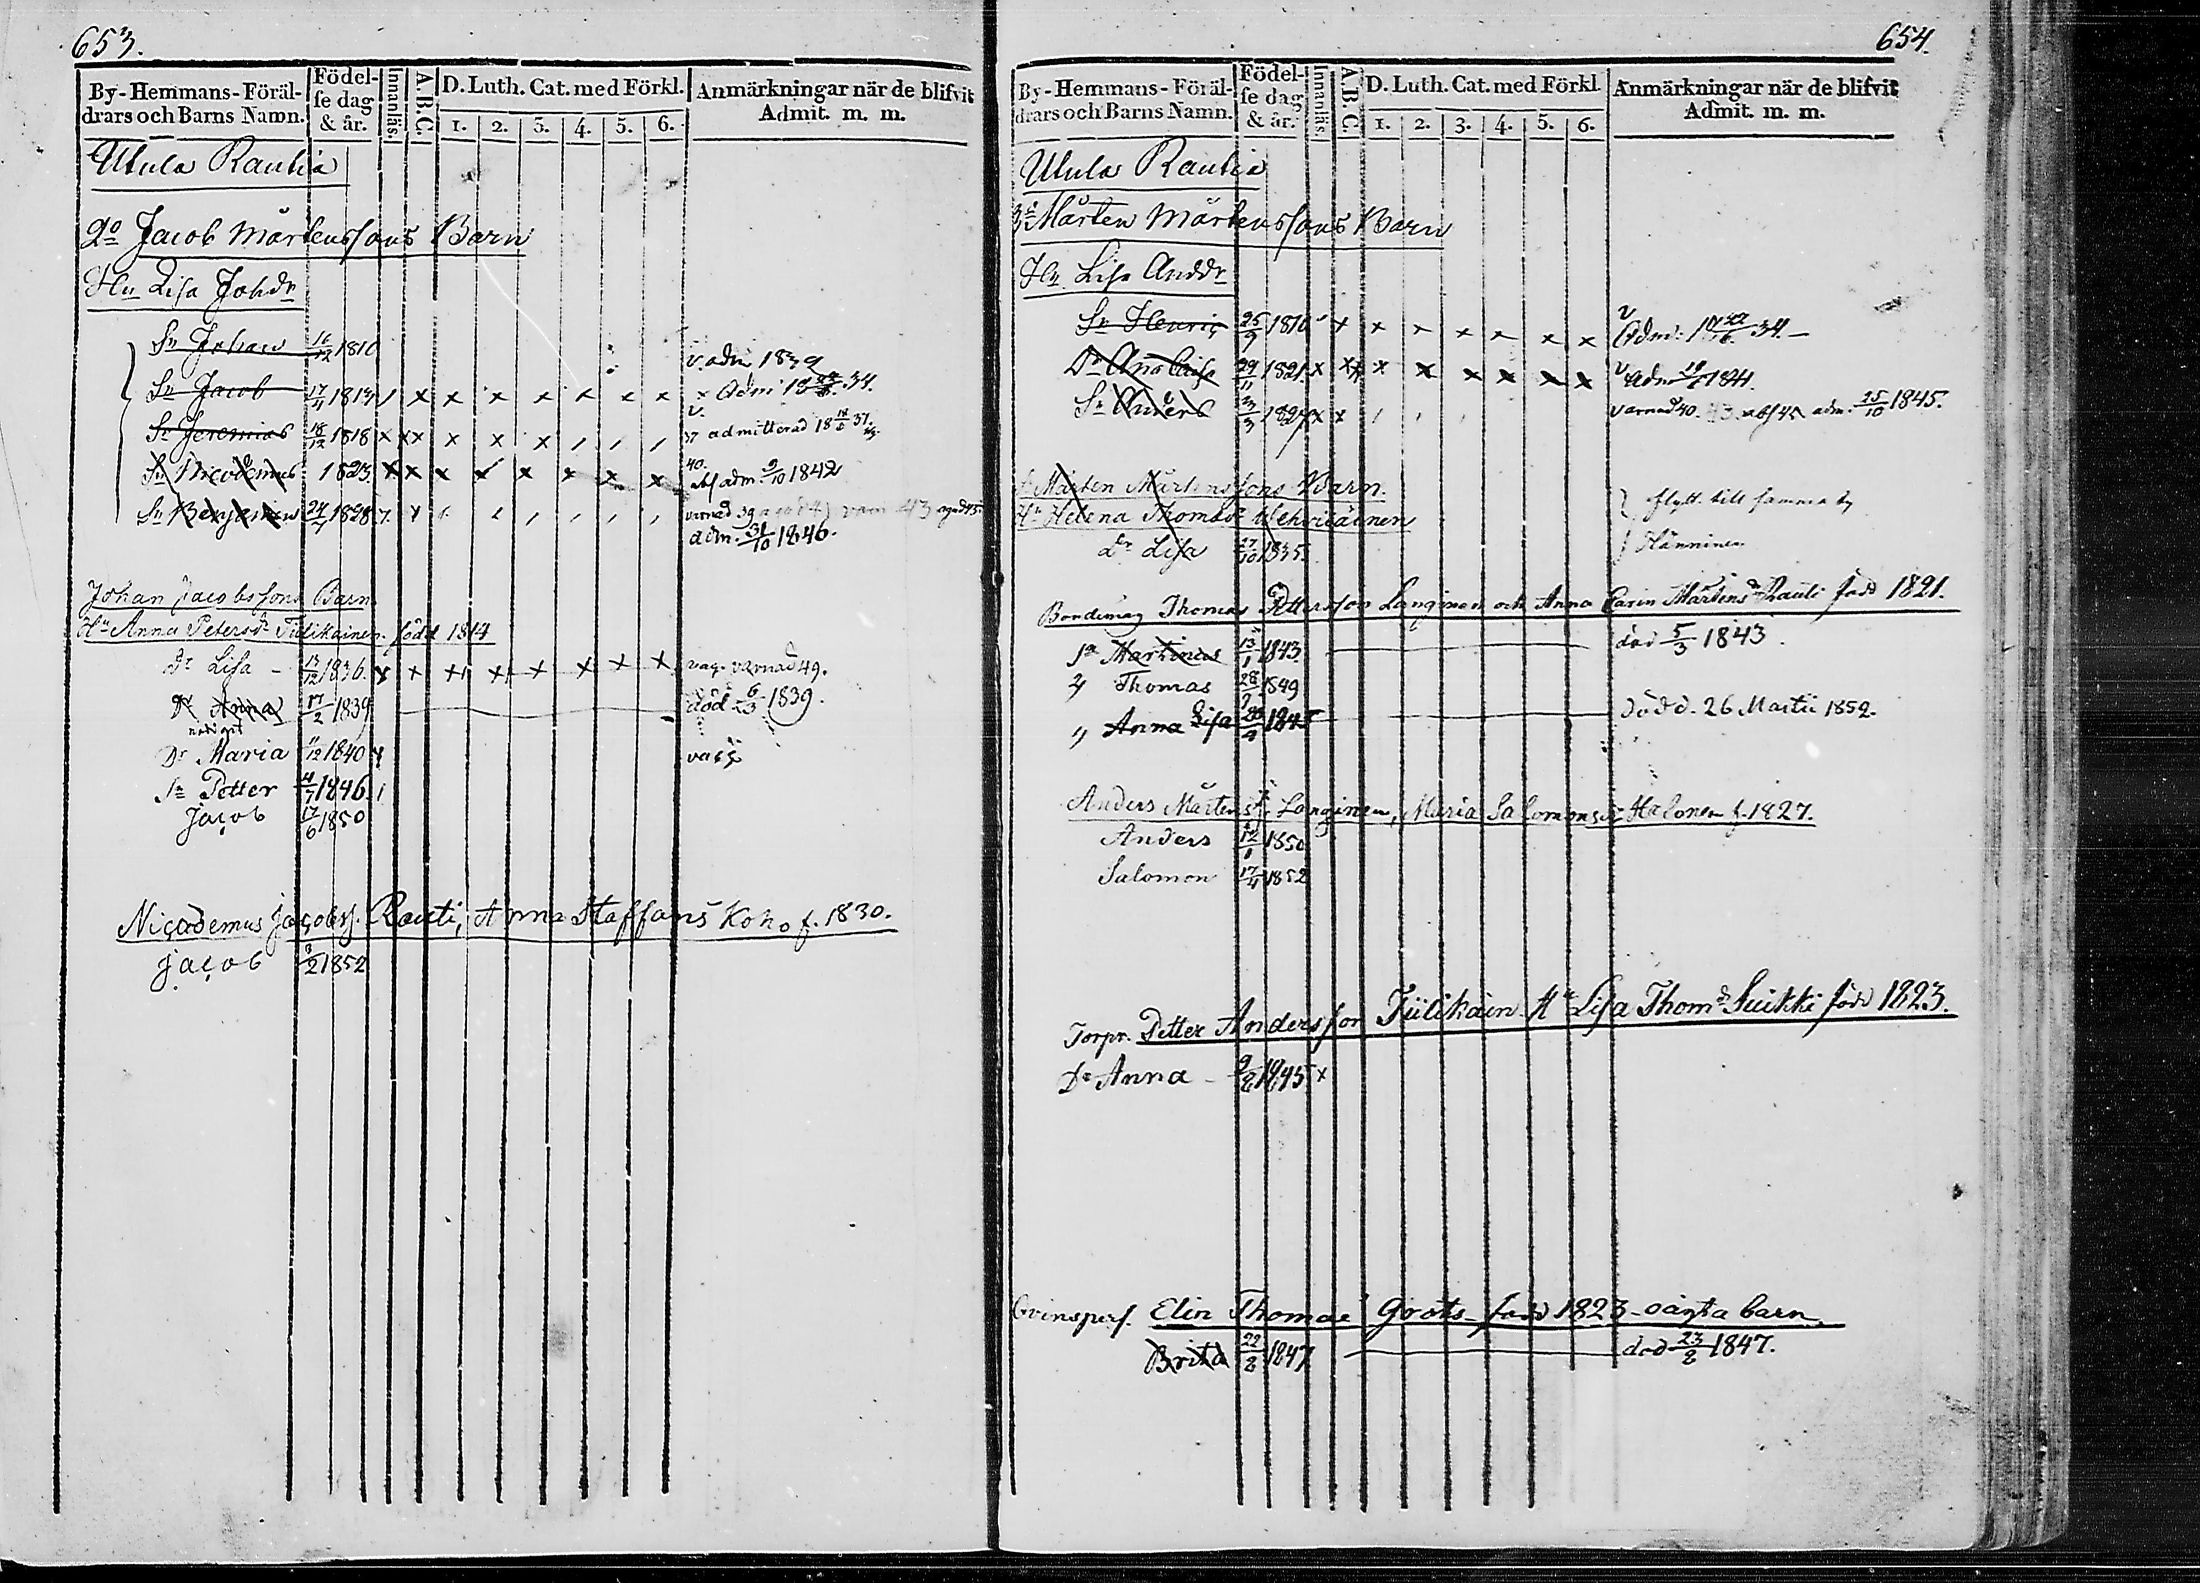 653.
By-Hemmans-Föräl-
drars och Barns Namn.
Födel-
se dag
& år.
Innanläs.
A.B.C.
D. Luth. Cat. med Förkl.
1. 2. 3. 4. 5. 6.
Anmärkningar när de blifvit
Admit. m. m.
Utula Rautia
2o Jacob Mårtenssons Barn
Hu Lisa Johdr
Sn Johan 16/12 1810 v. adm 1839
Sn Jacob 17/4 1813 / x x x x x x x x Adm: 34.
Sn Jeremias 18/12 1818 x xx x x x / / / 37 admitterad 37.
Sn Nicodemus 1823 x x x x x x x x 40. abs adm. 9/10 1842
Sn Benjamin 24/7 1828 varnad 39
adm. 31/10 1846.
Johan Jacobssons Barn.
Hu Anna Petersdr Tiilikainen född 1814
Dr Lisa - 13/12 1836. x + x+ x+ x x x x vag. varnad 49.
Dr Anna 17/2 1839 död 6/3 1839.
Dr Maria 11/12 1840
Sn Petter 4/7 1846. /
Jacob 17/6 1850
Nicademus Jacobss. Rauti, Anna Staffans Koho f. 1830.
Jacob 3/2 1852
654.
By-Hemmans-Föräl-
drars och Barns Namn.
Födel-
se dag
& år.
Innanläs.
A.B.C.
D. Luth. Cat. med Förkl
1. 2. 3. 4. 5. 6.
Anmärkningar när de blifvit
Admit. m. m.
Utula Rautia
3o Mårten Mårtenssons Barn
Hu Lisa Anddr
Sn Henric 25/9 1816 x x x x x x x Adm: 34.
Dr Ana Caisa 29/11 1821. x xx x x x x x x Adm 1841.
Sn Anders 3/3 1827 x x / / / varnad 40. 43. abs 45 adm. 25/10 1845.
Mårten Mårtenssons Barn.
Hu Helena Thomasdr Wehviläinen
Dr Lisa 27/10 1835.
flytt. till samma by
Hänninen
Bondemåg Thomas Pettersson Langinen och Anna Carin Mårtensdr Rauti född 1821.
Sn Martinus 13/1 1843. död 5/3 1843.
" Thomas 28/9 1849
" Anna Lisa död d. 26 Martii 1852.
Anders Mårtenss. Langinen, Maria Salomonsdr Halonen f. 1827.
Anders 12/1 1850
Salomon 17/4 1852
Torpr. Petter Andersson Tiilikain Hu Lisa Thomdr Suikki född 1823.
Dr Anna - 9/8 1845 x
Qvinspers. Elin Thomae Grots född 1823 - oägta barn
Brita 22/8 1847 död 23/8 1847.